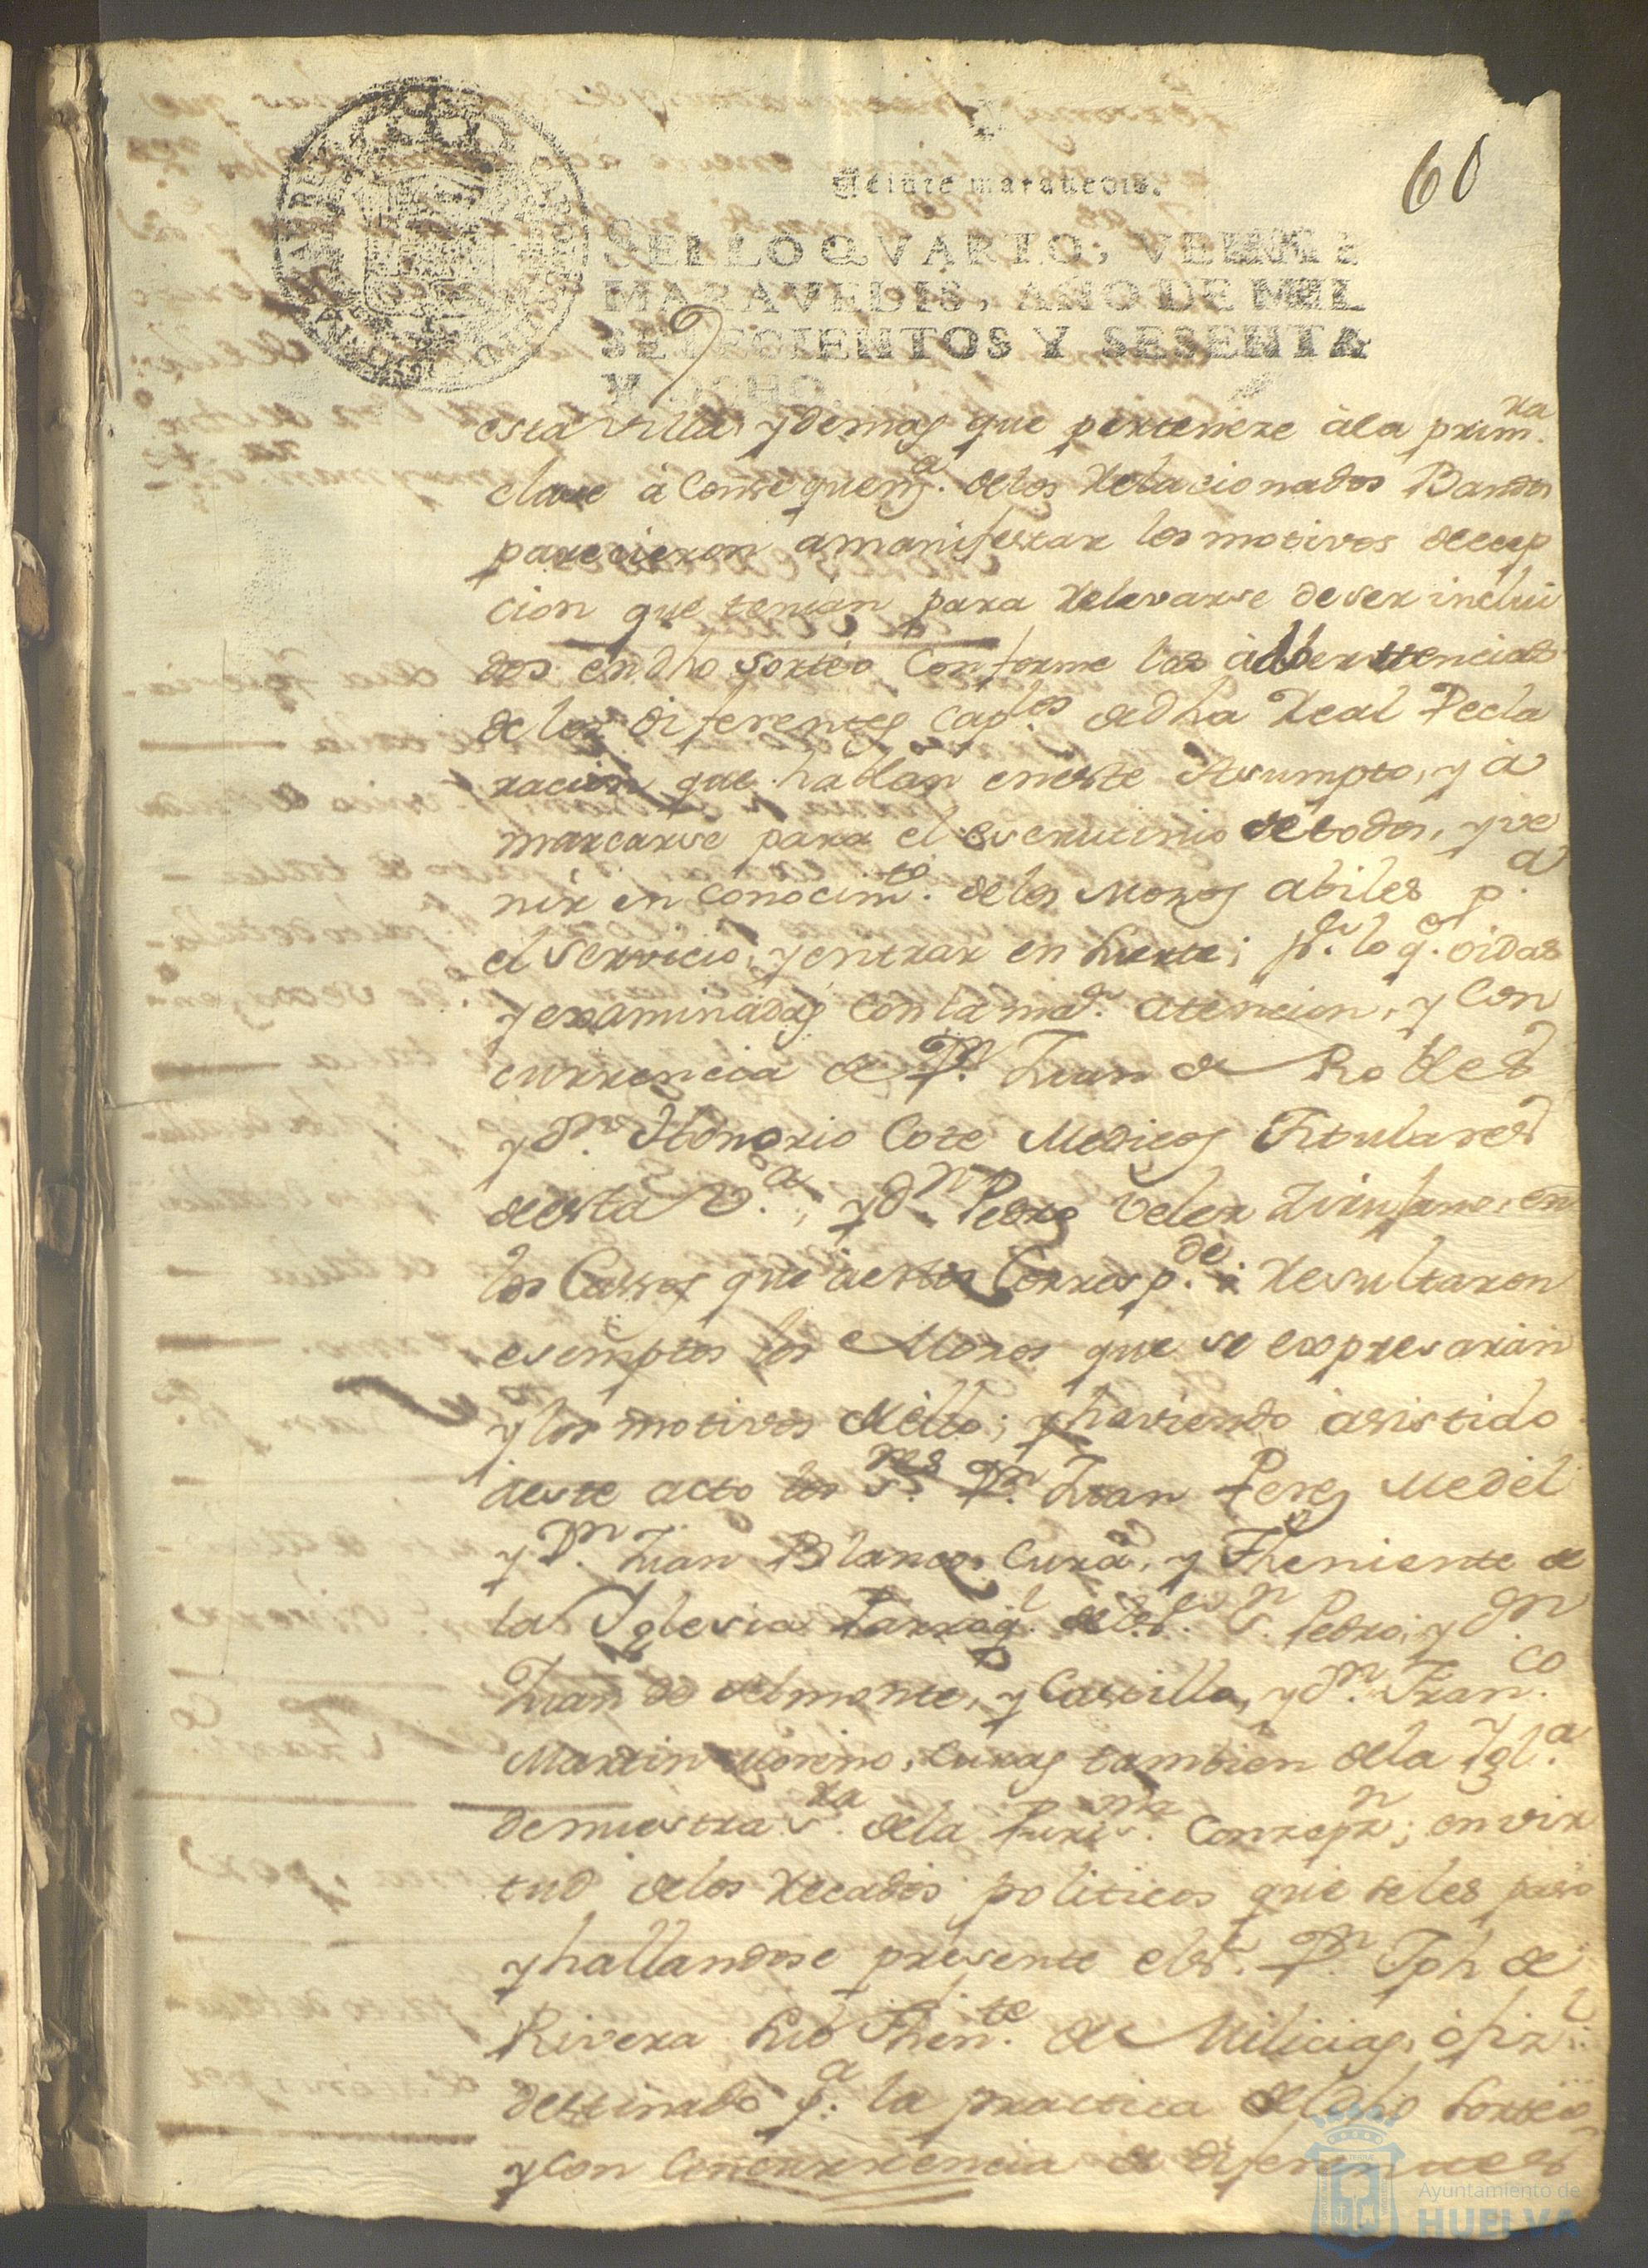 60
Veinte maravedis.
SELLO QVARTO, VEINTE
MARAVEDIS, AÑO DE MIL
SETECIENTOS Y SESENTA
Y OCHO.
esta villa, y demas que perteneze à la prim.ra
clase à Consequen.a de los Relacionados Bandos
parecieron a manifestar los motivos de ecep
cion que tenian para Relevarse de ser inclui
dos en dho sorteo Conforme las adbertencias
de los diferentes Cap.los de dha Real Decla
racion que hablan en este Asumpto, y à
marcarse para el escrutinio de todos, y ve
nir en Conocim.to de los Mozos abiles p.a
el Servicio, y entrar en Suerte; p.r lo q.e oidas
y examinadas Con la ma.r atencion, y Con
currencia de D.n Juan de Robles
y d.n Honorio Cote Medicos Titulares
de esta V.a, y d.n Pedro Velez Zirujano, en
los Casos que à estos Corresp.de Resultaron
esemptos los Mozos que se expresaràn
y los motivos de ello; y haviendo asistido
à este acto los S.res D.n Juan Perez Medel
y D.n Juan Blanco, Cura, y Theniente de
la Yglesia Parroq.l del S.r S.n Pedro, y d.n
Juan de velmonte, y Castilla, y d.n Fran.co
Martin Moreno, Curas tambien de la Ygl.a
de nuestra S.ra de la Puris.ma Conzepz.n; en vir
tud de los Recados politicos que se les paso
y hallandose presente el S.r D.n Jph de
Rivera Sub Then.te de Milicias, ofiz.l
destinado p.a la practica de dho Sorteo
y Con Concurrencia de diferentes
Ayuntamiento de
HUELVA